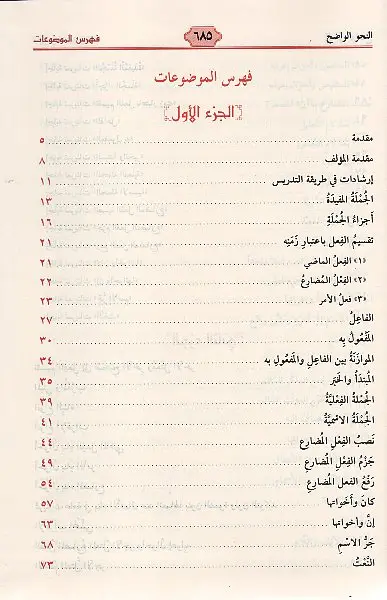 النحو الواضح ٦٨٥ فهرس الموضوعات
فهرس الموضوعات
[الجزء الأول]
مقدمة ٥
مقدمة المؤلف ٨
إرشادات في طريقة التدريس ١١
الجُمْلَةُ المفِيدَةُ ١٣
أجزاءُ الجُمْلَةِ ١٦
تقسيمُ الفِعل باعتبارِ زَمَنِه ٢١
«١» الفِعلُ الماضي ٢١
«٢» الفِعْلُ المُضارعُ ٢٢
«٣» فعلُ الأمر ٢٣
الفاعِلُ ٢٧
المَفْعُولُ به ٣٠
الموازَنَةُ بين الفاعِلِ والمَفْعُولِ به ٣٤
المُبْتَدَأُ والخَبَر ٣٥
الجُمْلَةُ الفِعْلِيَّةُ ٣٩
الجُمْلَةُ الاسْمِيَّةُ ٤١
نَصبُ الفِعْلِ المُضارع ٤٤
جَزْمُ الفِعْلِ المُضارعِ ٤٩
رَفْعُ الفعل المضارع ٥٤
كانَ وأخواتها ٥٧
إنَّ وأخواتها ٦٣
جَرُّ الاسْمِ ٦٨
النَّعْتُ ٧٣